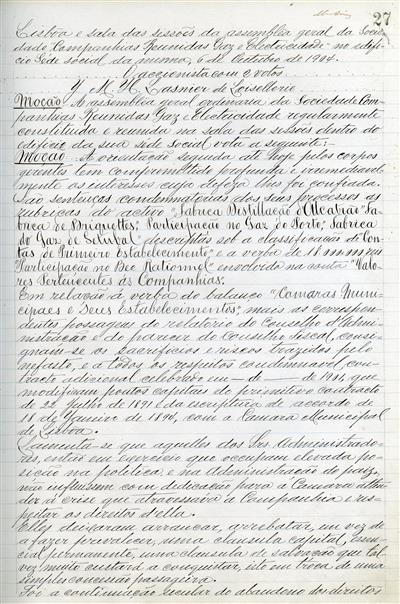 27
Lisboa e sala das sessões da assembléa geral da Socie-
dade, Companhias Reunidas Gaz e Electricidade no edifi-
cio séde social da mesma, 6 de Outubro de 1904.
O accionista com votos
Moção. A assembléa geral ordinaria da Sociedade Com-
panhias Reunidas Gaz e Electricidade regularmente
constituida e reunida na sala das sessões dentro do
edificio da sua séde Social vota a seguinte:
Moção. A orientação seguida até hoje pelos corpos
gerentes tem compromettido profunda e irremediavel-
mente os interesses cuja defeza lhes foi confiada.
São sentenças condemnatorias dos seus processos as
rubricas do activo "Fabrica Distillação d'Alcatrão" "Fa-
brica de Briquettes"; Participação no Gaz do Porto; Fabrica
do Gaz de Setubal" descriptas sob a classificação de "Con-
tas de Primeiro Estabelecimento" e a verba de
"Participação no Bec National" envolvida na conta "Valo-
res Pertencentes ás Companhias".
Em relação á verba do balanço "Camaras Muni-
cipaes e Seus Estabelecimentos", mais as correspon-
dentes passagens do relatorio do Conselho d'Admi-
nistração e do parecer do Conselho Fiscal, consi-
gnam-se os sacrificios e riscos trazidos pelo
nefasto, e a todos os respeitos condemnavel, con-
tracto addicional celebrado em — de — de 1904, que
modificam pontos capitaes do primitivo contracto
de 22 Julho de 1891 e da escriptura de accordo de
18 de Janeiro de 1894, com a Camara Municipal
de Lisboa.
Lamenta-se que aquelles dos Srs. Administrado-
res, então em exercicio que occupam elevada po-
sição na politica e na Administração do paiz,
não influissem com dedicação para a Camara atten-
der á crise que atravessava a Companhia e res-
peitar os direitos d'ella.
Elles deixaram arrancar, arrebatar, em vez de
a fazer prevalecer, uma clausula capital, essen-
cial permanente, uma clausula de salvação que tal-
vez muito custará a conquistar, isto em troca de uma
simples concessão passageira.
Foi a continuação secular do abandono dos direitos